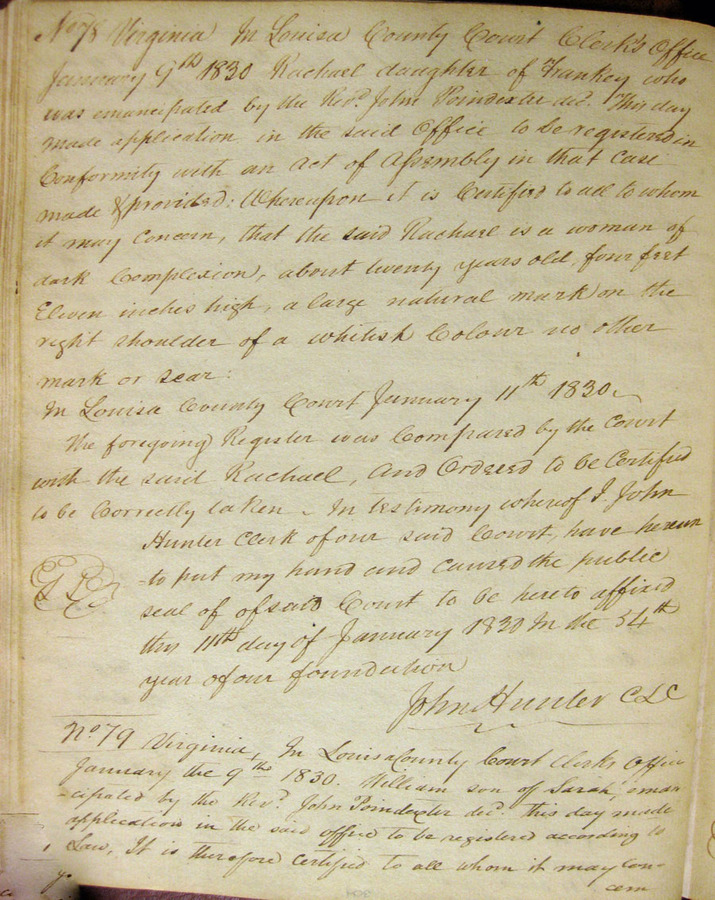 No 78 Virginia In Louisa County Court Clerk's Office
January 9th 1830 Rachael daughter of Frankey who
was emancipated by the Revd. John Poindexter decd. This day
made application in the said Office to be registered in
Conformity with an act of Assembly in that Case
made & provided: Whereupon it is Certified to all to whom
it may Concern, that the said Rachael is a woman of
dark Complexion, about twenty years old, four feet
Eleven inches high, a large natural mark on the
right shoulder of a whitish Colour no other
mark or scar:
In Louisa County Court January 11th 1830.
The foregoing Register was Compared by the Court
with the said Rachael, and Ordered to be Certified
to be Correctly taken. In testimony whereof I John
Hunter Clerk of our said Court, have hereun
to put my hand and caused the public
seal of of said Court to be hereto affixed
this 11th day of January 1830 In the 54th
year of our foundation
John Hunter CLC
No. 79 Virginia, In Louisa County Court Clerks Office
January the 9th 1830. William son of Sarah, eman
-cipated by the Revd. John Poindexter decd. this day made
application in the said office to be registered according to
Law, It is therefore Certified to all whom it may Con-
cern